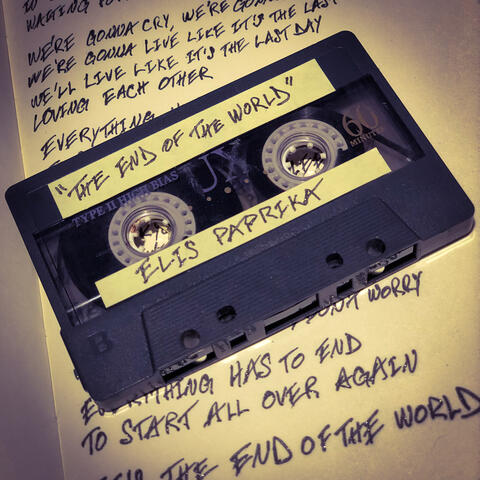 WAITING
WE'RE GONNA CRY, WE'RE GONNA
WE'RE GONNA LIVE LIKE IT'S THE LAST
WE'LL LIVE LIKE IT'S THE LAST DAY
LOVING EACH OTHER
EVERYTHING
"THE END OF THE WORLD"
TYPE II HIGH BIAS UX
60
MINUTES
ELIS PAPRIKA
B
DON'T WORRY
EVERYTHING HAS TO END
TO START ALL OVER AGAIN
THE END OF THE WORLD